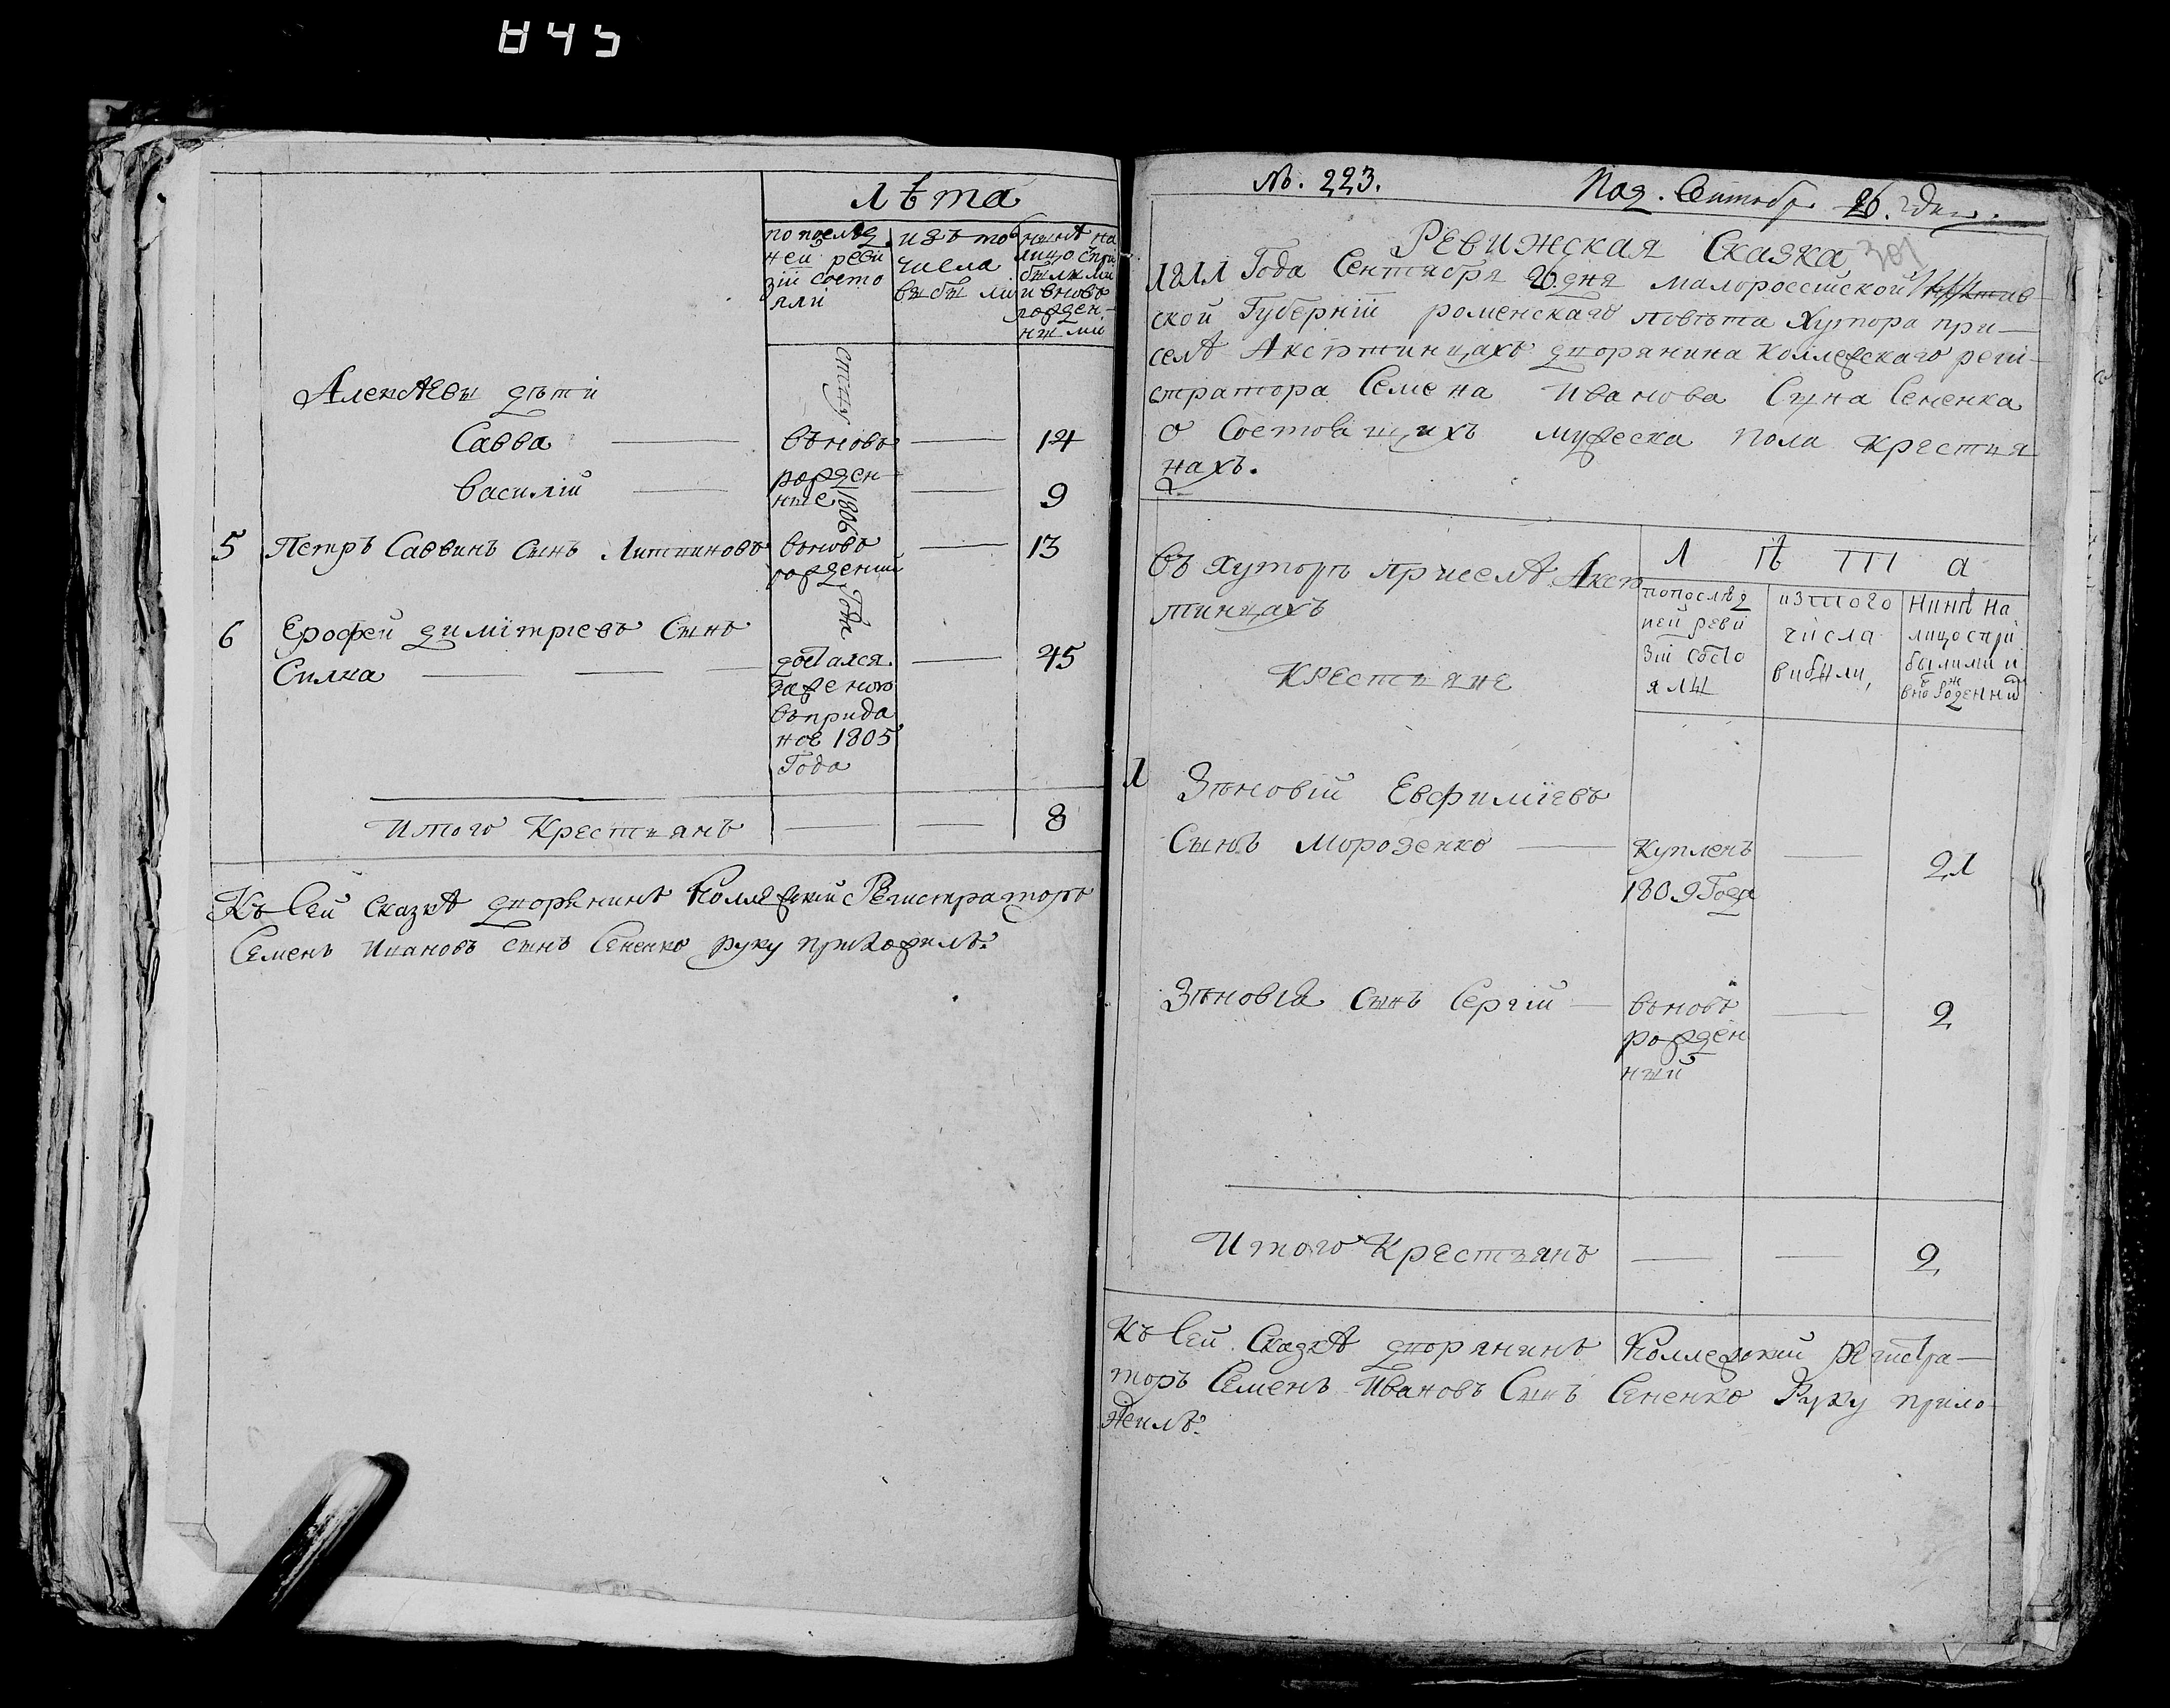 845
Лѣта
по послѣд
ней реви
зіи состо
яли
изъ того
числа
выбыли
нынѣ на
лицо с при
былыми
и вновь
рожден-
ными
Алексѣевы дѣти
Савва
вьновь
14
Василій
рожден-
ные
9
1806
Года
5
Петръ Саввинъ сынъ Литвиновъ
вьновь
рожденый
13
6
Ерофей Димітріевъ Сынъ
Силка
достался
заженою
въ прида
ное 1805
Года
45
Итого Крестьянъ
8
Къ сей сказкѣ дворянинъ Коллежскій Регистраторъ
Семенъ Ивановъ сынъ Сененко руку приложилъ.
№. 223.
Под. Сентября 26. дня.
301
Ревижская Сказка
1811 Года Сентября 26. дня малороссійской Полтав-
ской Губерніи роменскаго повѣта Хутора при-
селѣ Аксютинцахъ дворянина коллежскаго реги-
стратора Семена Иванова Сына Сененка
о Состоящихъ мужеска пола крестья
нахъ.
Въ хуторѣ приселѣ Аксю
тинцахъ
Крестьяне
Л ѣ т а
попослѣд
ней реви
зіи состо
ялы
изтого
числа
выбыли,
нинѣ на
лицо с при
былими и
вновь рожденни
1
Зѣновій Евфиміевъ
Сынъ Морозенко
Купленъ
1809 Года
21
Зѣновія Сынъ Сергій
вьновь
рожден
ный
2
Итого Крестьянъ
2
Къ сей Сказкѣ дворянинъ Коллежскій регистра-
торъ Семенъ Ивановъ Сынъ Сененко Руку прило-
жилъ.